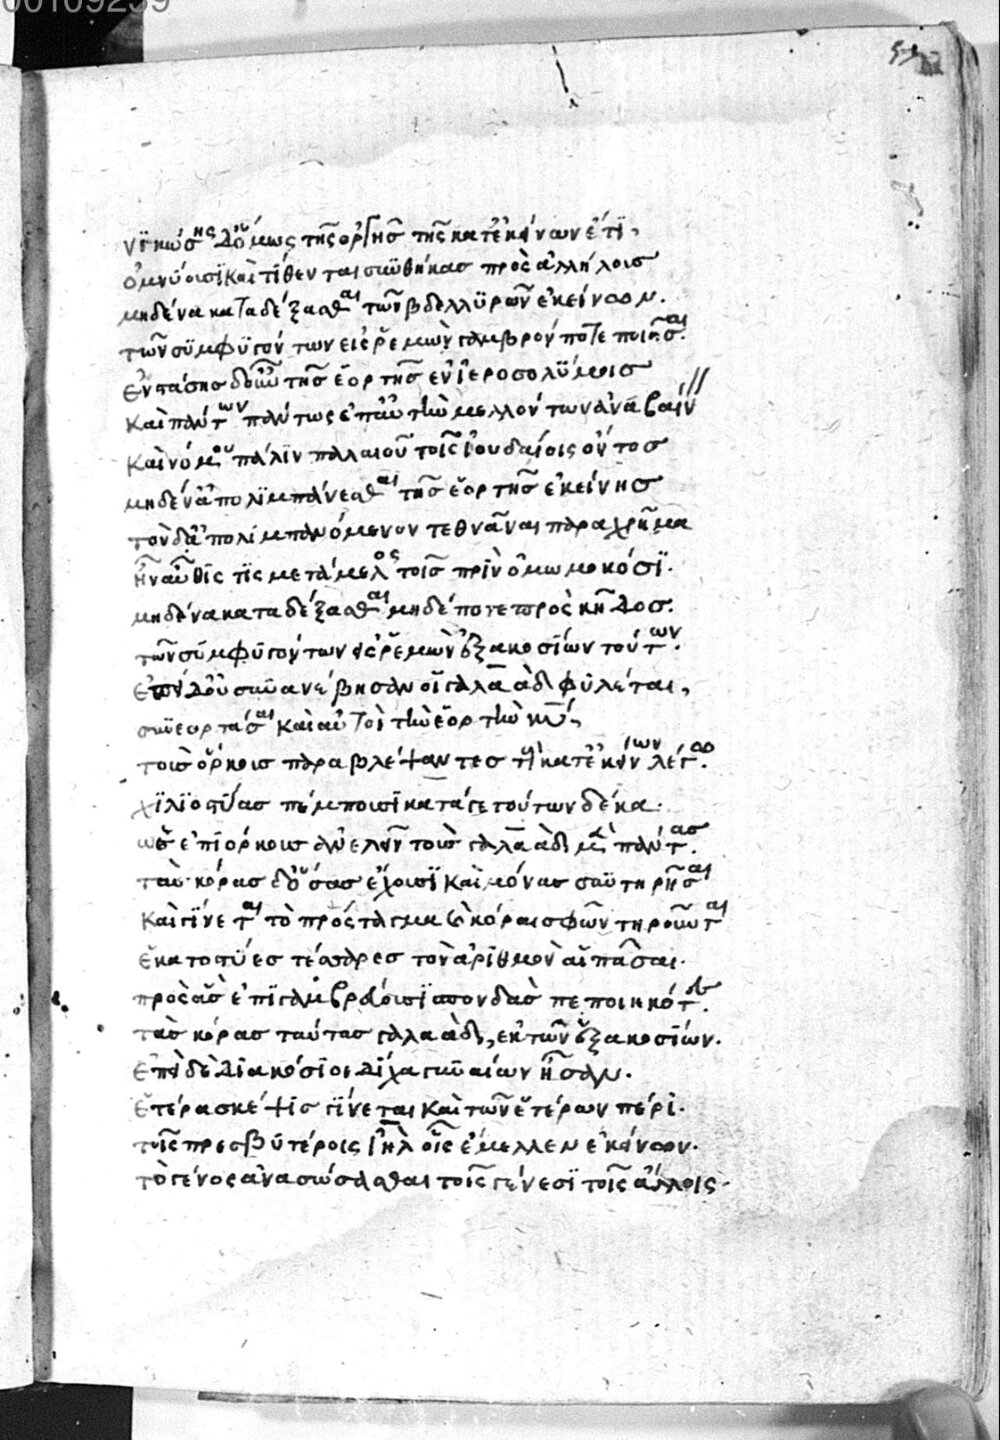 νικώσης δ' ὅμως τῆς ὀργῆς τῆς κατ' ἐκείνων ἔτι,
ὀμνύουσι καὶ τίθενται συνθήκας πρὸς ἀλλήλους
μηδένα καταδέξασθαι τῶν βδελλυρῶν ἐκείνων.
τῶν συμφυγόντων εἰς ῥεμὼν γαμβρόν ποτε ποιῆσαι.
ἐνστάσης δ' οὖν τῆς ἑορτῆς ἐν ἱεροσολύμοις
καὶ πάντων πάντως ἐπ' αὐτὴν μελλόντων ἀναβαίν
καὶ νόμου πάλιν παλαιοῦ τοῖς ἰουδαίοις ὄντος
μηδέν' ἀπολιμπάνεσθαι τῆς ἑορτῆς ἐκείνης
τὸν δ' ἀπολιμπανόμενον τεθνᾶναι παραχρῆμα
ἦν αὖθις τις μετάμελος τοῖς πρὶν ὀμωμοκόσι.
μηδένα καταδέξασθαι μηδέποτε πρὸς κῆδος.
τῶν συμφυγόντων εἰς ῥεμὼν ἑξακοσίων τούτων.
ἐπεὶ δ' οὐ συνανέβησαν οἱ γαλαὰδ φυλέται,
συνεορτάσαι καὶ αὐτοὶ τὴν ἑορτὴν
τοὺς ὅρκους παραβλέψαντες τῇ κατ' ἐκείνων λέγω.
χιλιοστύας πέμπουσι κατά γε τούτων δέκα.
ὡς ἐπιόρκους ἀνελεῖν τοὺς γαλαὰδ πάντας.
τὰς κόρας δ' οὔσας ἔχουσι καὶ μόνας συντηρῆσαι
καὶ γίνεται τὸ πρόσταγμα κόραι σφῶν τηροῦνται
ἑκατοστύες τέσσαρες τὸν ἀριθμὸν αἱ πᾶσαι.
πρὸς ἃς ἐπιγαμβρεύουσι σπονδὰς πεποιηκότες.
τὰς κόρας ταύτας γαλαὰδ, ἐκ τῶν ἑξακοσίων.
ἐπεὶ δὲ διακόσιοι δίχα γυναίων ἦσαν.
ἑτέρα σκέψις γίνεται καὶ τῶν ἑτέρων πέρι.
τοῖς πρεσβυτέροις ἰηλ οἷς ἔμελλεν ἐκείνων.
τὸ γένος ἀνασώσασθαι τοῖς γένεσι τοῖς ἄλλοις.